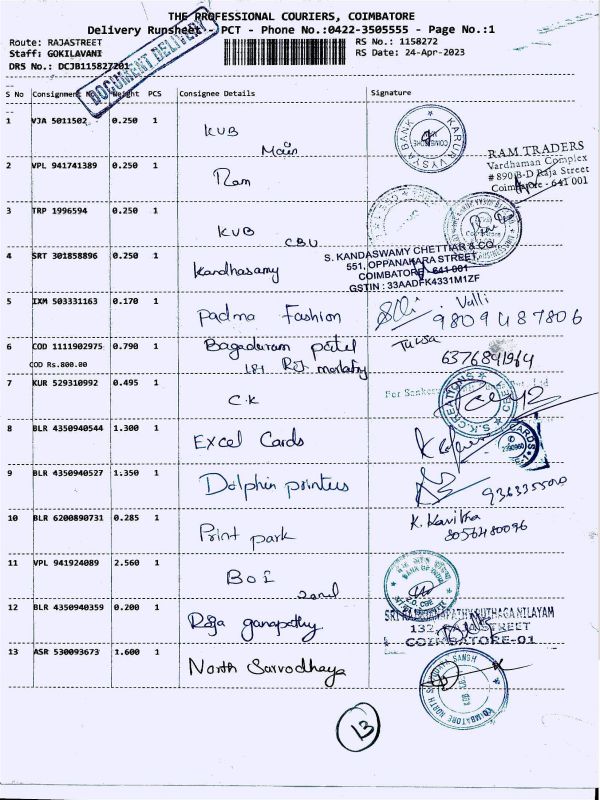 THE PROFESSIONAL COURIERS, COIMBATORE
Delivery Runsheet - PCT - Phone No.:0422-3505555 - Page No.:1
Route: RAJASTREET
RS No.: 1158272
Staff: GOKILAVANI
RS Date: 24-Apr-2023
DRS No.: DCJB115827201
DOCUMENT DELIVERY
S No Consignment No Weight PCS Consignee Details Signature
1 VJA 5011502 0.250 1 KVB
Main
KARUR VYSYA BANK
RAM TRADERS
Vardhaman Complex
# 890 B-D Raja Street
Coimbatore - 641 001
2 VPL 941741389 0.250 1 Ram
3 TRP 1996594 0.250 1 KVB
CBU
4 SRT 301858896 0.250 1 Kandhasamy
S. KANDASWAMY CHETTIAR & CO.
551, OPPANAKARA STREET,
COIMBATORE - 641 001
GSTIN : 33AADFK4331M1ZF
5 IXM 503331163 0.170 1 Padma Fashion
Valli
9809487806
6 COD 1111902975 0.790 1 Bagaduram patel
COD Rs.800.00
181
Tulsa
6376841964
7 KUR 529310992 0.495 1 C.K
For
Ltd
S.K.CREATIONS
8 BLR 4350940544 1.300 1 Excel Cards
CARDS
9 BLR 4350940527 1.350 1 Dolphin printers
10 BLR 6200890731 0.285 1 Print park
K. Kavitha
8056480096
11 VPL 941924089 2.560 1 BOI
Zonal
BANK OF INDIA
Z.O. CBE
12 BLR 4350940359 0.200 1 Raja ganapathy
SRI RAJAGANAPATHY PUTHAGA NILAYAM
132, RAJA STREET
COIMBATORE-01
13 ASR 530093673 1.600 1 North Sarvodhaya
COIMBATORE NORTH SARVODAYA SANGH
13